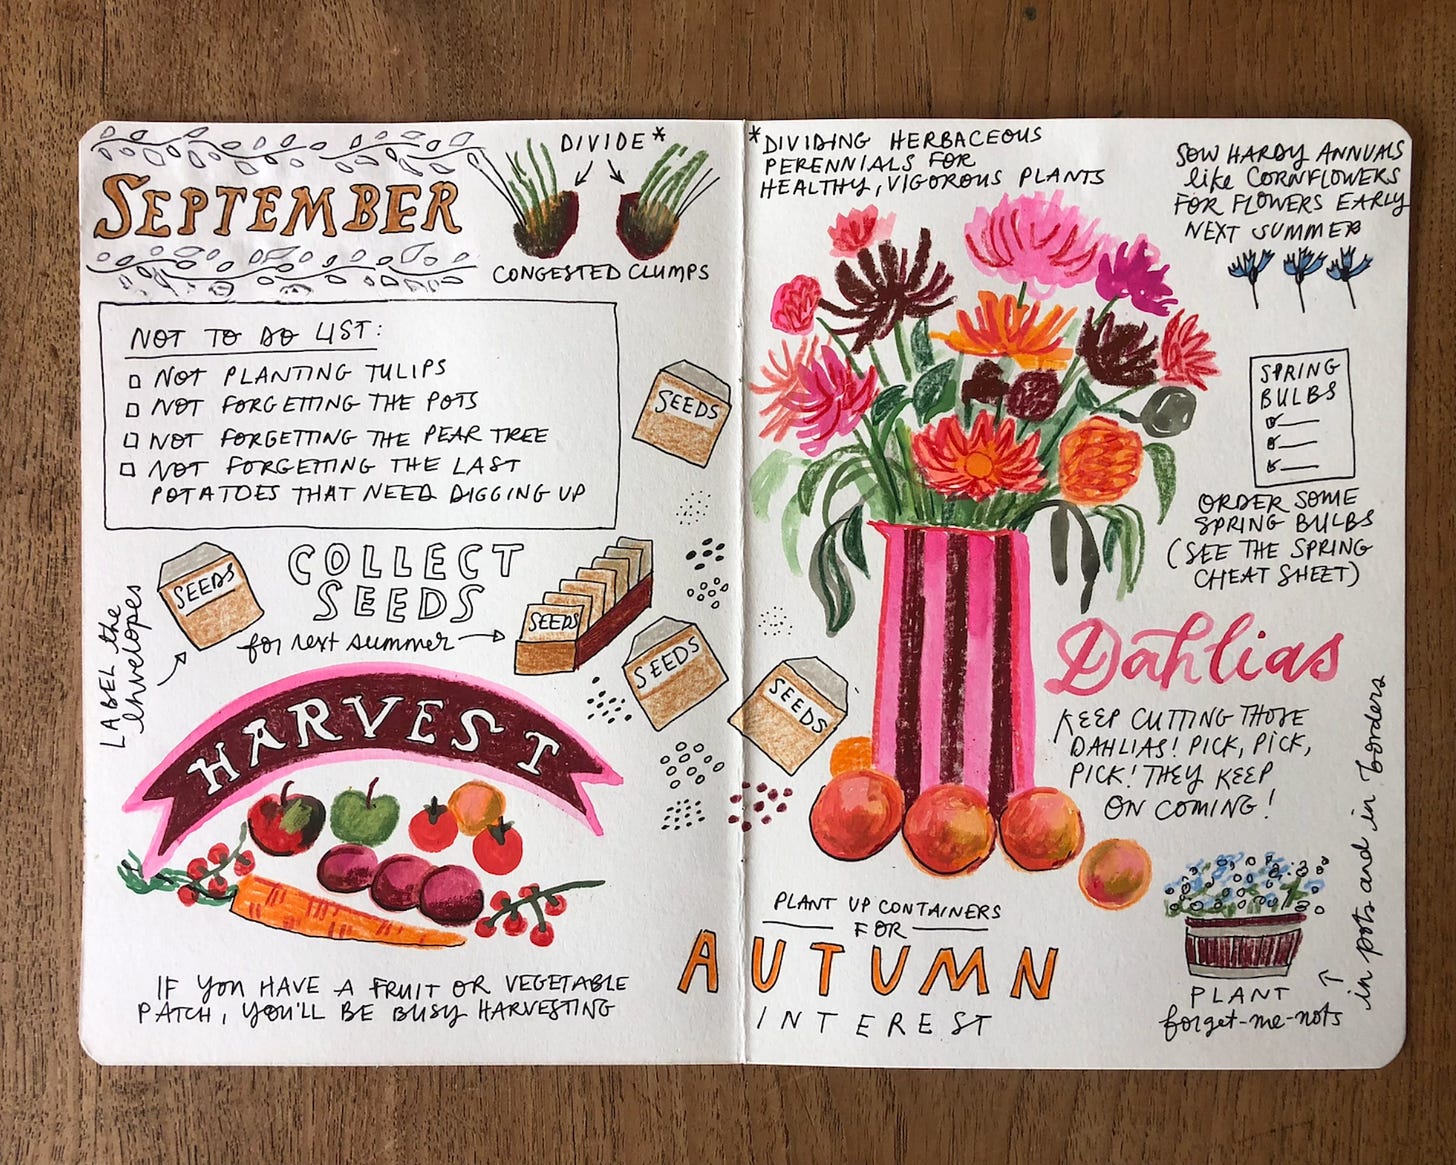 SEPTEMBER
DIVIDE*
CONGESTED CLUMPS
NOT TO DO LIST:
NOT PLANTING TULIPS
NOT FORGETTING THE POTS
NOT FORGETTING THE PEAR TREE
NOT FORGETTING THE LAST
POTATOES THAT NEED DIGGING UP
SEEDS
COLLECT
SEEDS
for next summer
SEEDS
LABEL the
envelopes
SEEDS
SEEDS
SEEDS
HARVEST
IF YOU HAVE A FRUIT OR VEGETABLE
PATCH, YOU'LL BE BUSY HARVESTING
*DIVIDING HERBACEOUS
PERENNIALS FOR
HEALTHY, VIGOROUS PLANTS
SOW HARDY ANNUALS
like CORNFLOWERS
FOR FLOWERS EARLY
NEXT SUMMER
SPRING
BULBS
ORDER SOME
SPRING BULBS
(SEE THE SPRING
CHEAT SHEET)
Dahlias
KEEP CUTTING THOSE
DAHLIAS! PICK, PICK,
PICK! THEY KEEP
ON COMING!
PLANT UP CONTAINERS
FOR
AUTUMN
INTEREST
PLANT
forget-me-nots
in pots and in borders